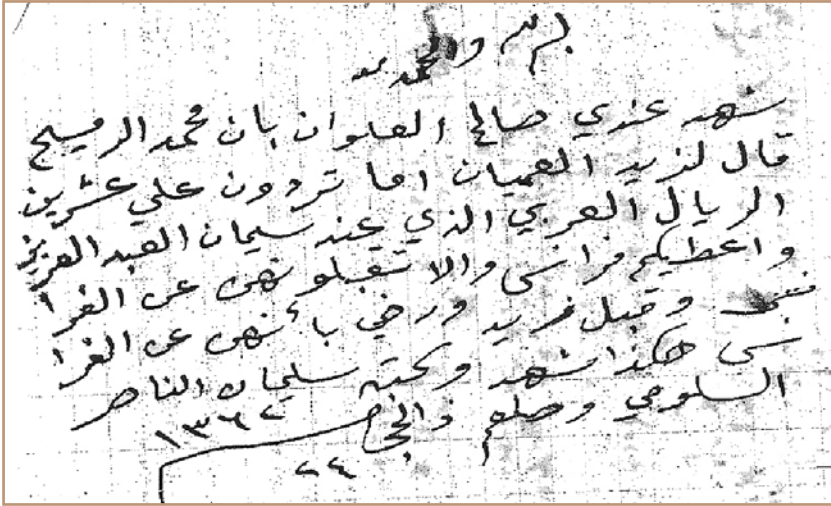 بسم الله والحمد لله
شهد عندي صالح العلوان بان محمد الرميح
قال لزيد العميان اما تردون علي عشرين
الريال العربي الذي عند سليمان العبد العزيز
واعطيكم فرانسى والا تقبلونهن عن الفرا
نسى وقبل زيد ورضي بأنهن عن الفرا
سى هكذا شهد وكتبه سليمان الناصر
السلومي وصلعم
١٣٦٢
٢٤